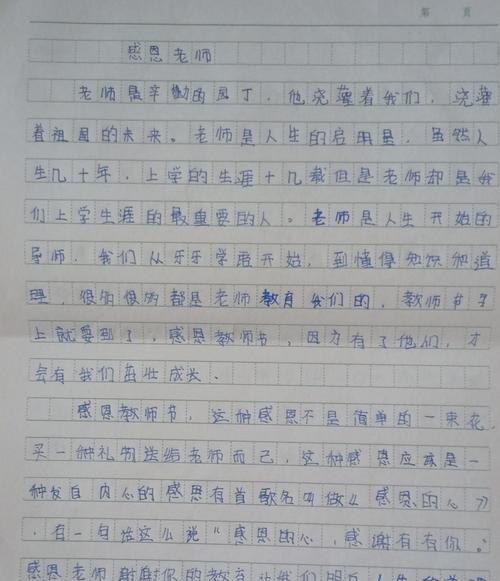 第 页
感恩老师
老师是辛勤的园丁，他浇灌着我们，浇灌
着祖国的未来。老师是人生的启明星，虽然人
生几十年，上学的生涯十几载但是老师却是我
们上学生涯的最重要的人。老师是人生开始的
导师，我们从乐乐学语开始，到懂得知识知道
理，很多很多都是老师教育我们的，教师节马
上就要到了，感恩教师节，因为有了他们，才
会有我们茁壮成长．
感恩教师节，这种感恩不是简单的一束花，
买一种礼物送给老师而已，这种感恩应该是一
种发自内心的感恩有首歌名叫做《感恩的心》
，有一句话这么说"感恩的心，感谢有有你。
感恩老师 谢谢你的教育 让我们明白人生的